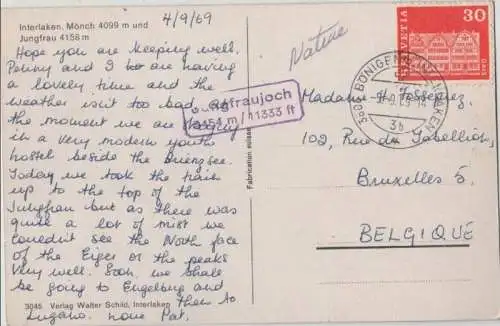 Interlaken, Mönch 4099 m und
Jungfrau 4158 m
4/9/69
Hope you are keeping well.
Penny and I are having
a lovely time and the
weather isn't too bad. At
the moment we are
in a very modern youth
hostel beside the
Today we took the train
up to the top of the
Jungfrau but as there was
quite a lot of mist we
couldn't see the North face
of the Eiger or the peaks
very well. Soon, we shall
be going to Engelberg and
then to
Lugano. Love Pat.
3045 Verlag Walter Schild, Interlaken
Jungfraujoch
3454 m / 11333 ft
Nature
HELVETIA
30
3b
Madame
102, Rue de
Bruxelles 5.
BELGIQUE